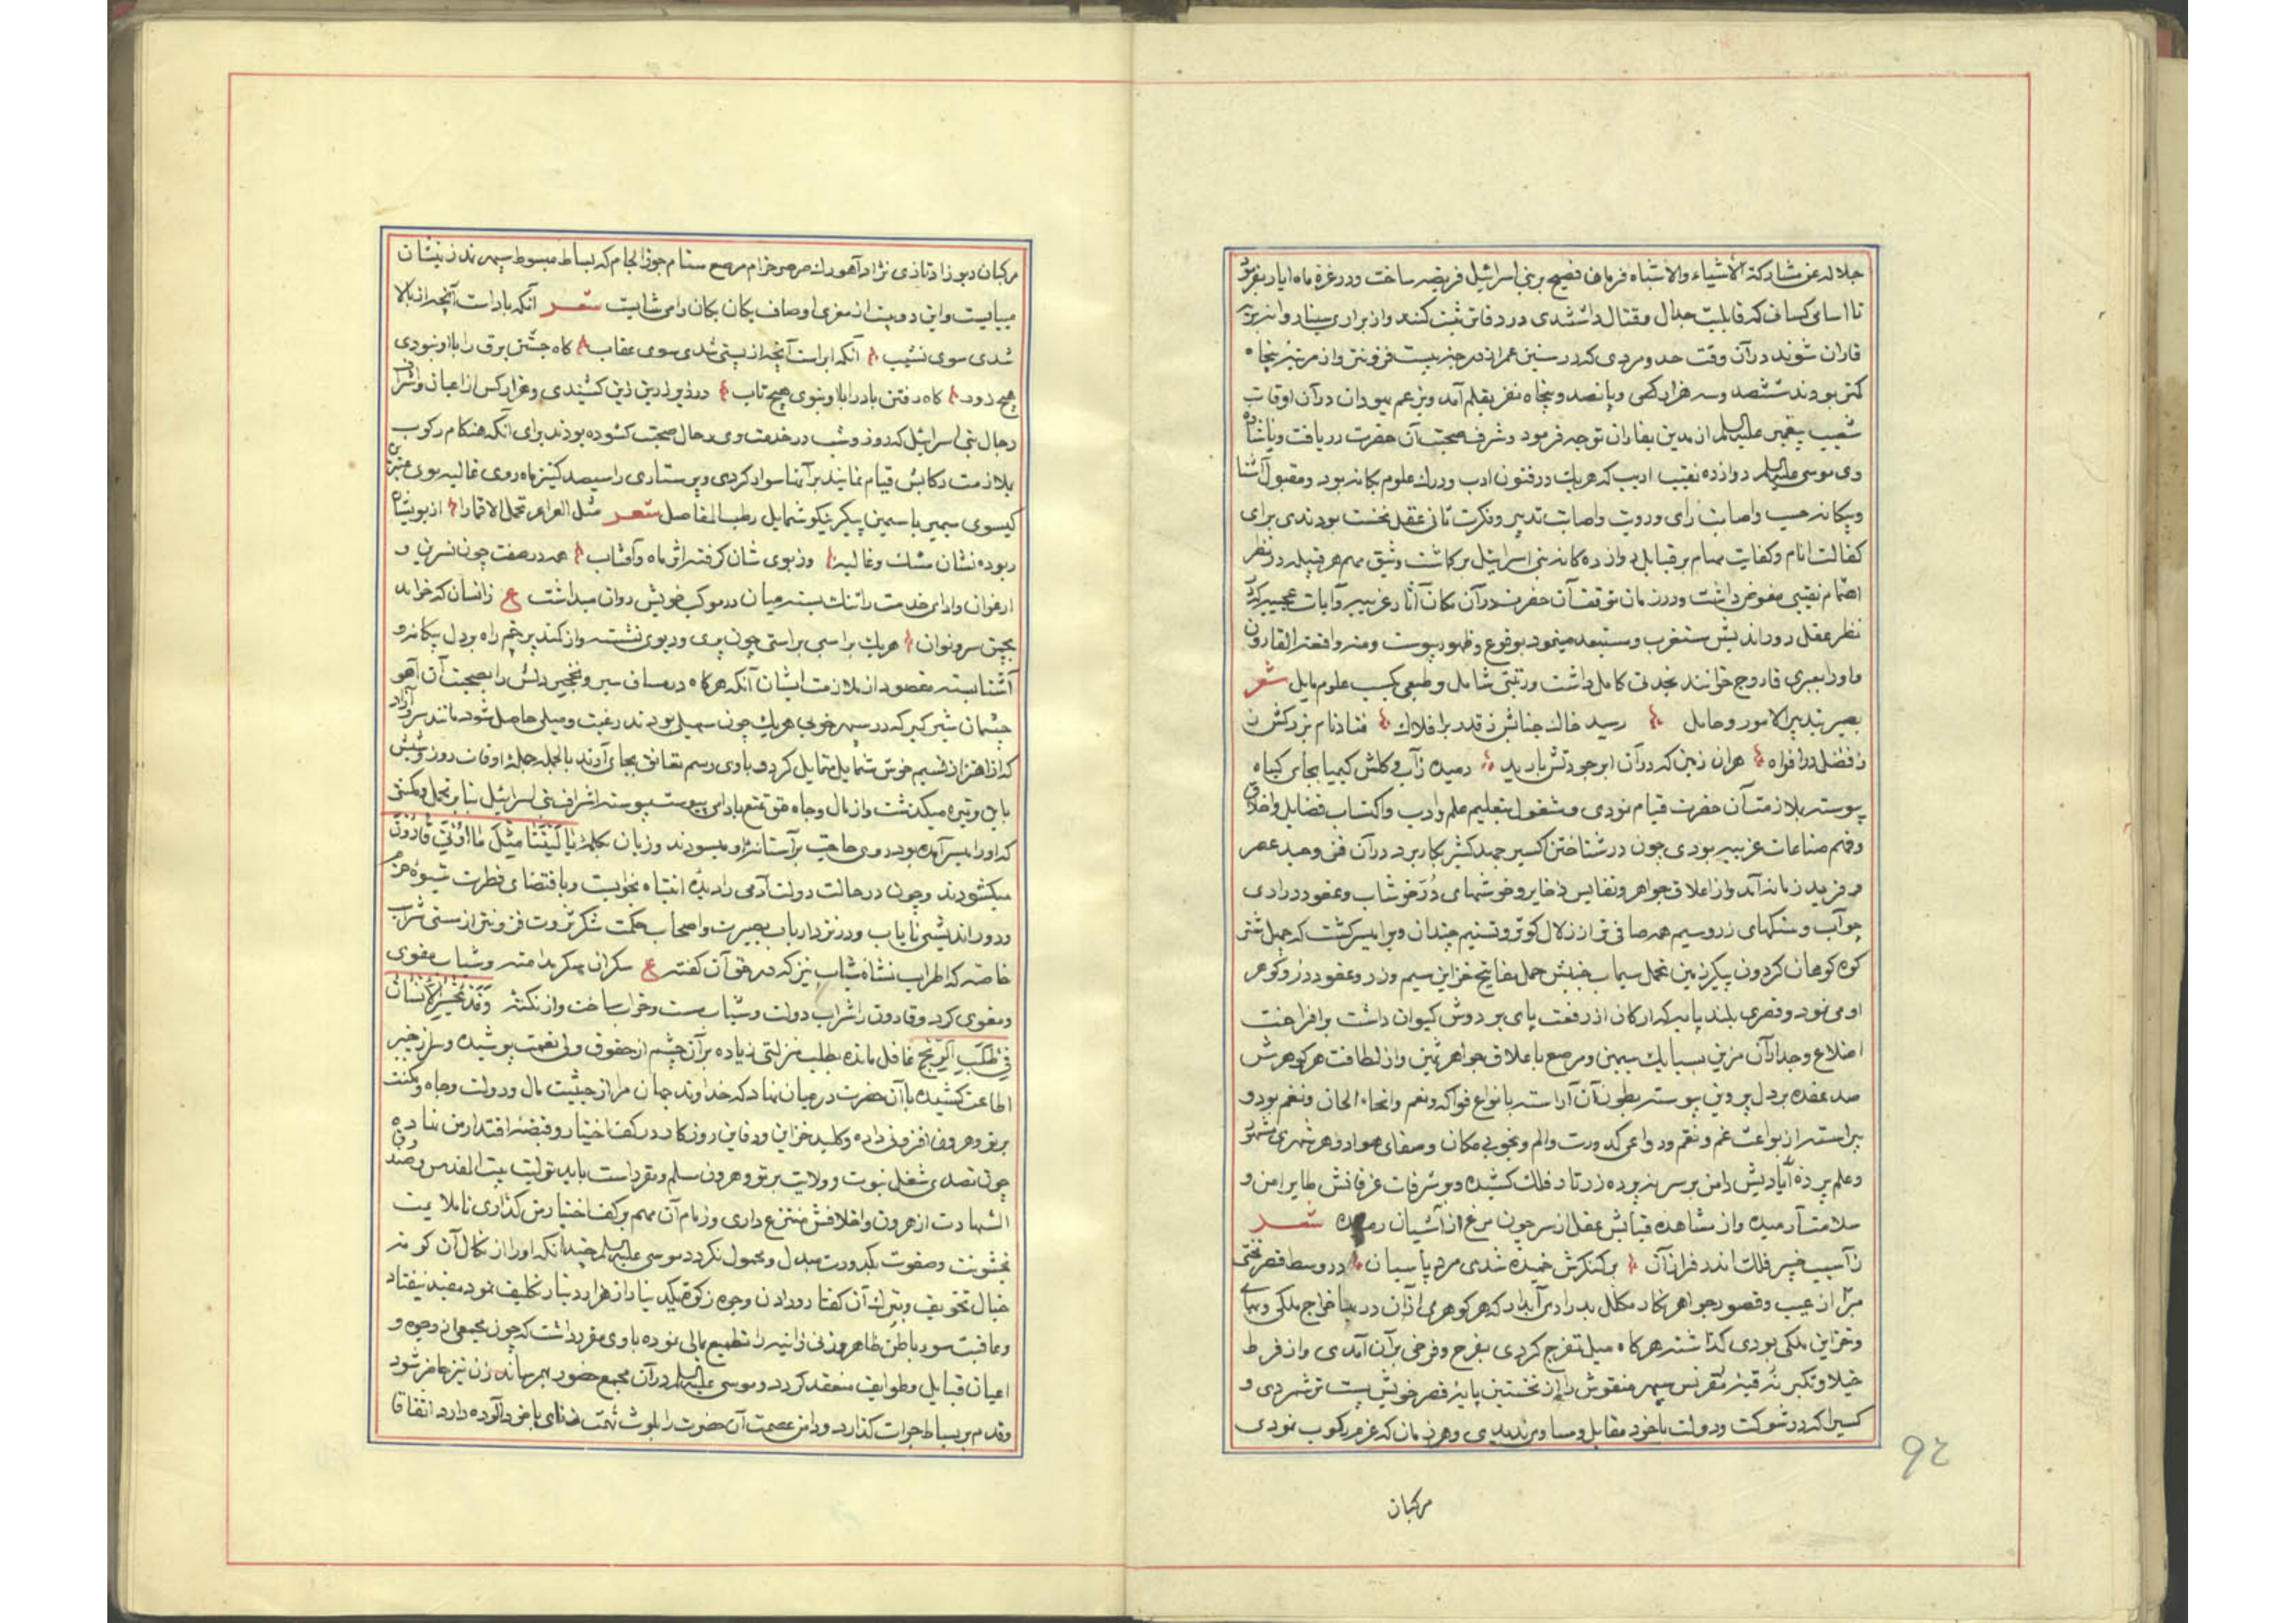 جلاله عن مشارکة الاشیاء والاشباه فرمان فصیح بر بنی اسرائیل فریضه ساخت ودر غرهٔ ماه ایار بفرمود
تا اسامی کسانی که قابلیت جدال ومقتال داشتندی در دفاتر ثبت کنند واز براری سینا روانه بریه
فاران شوند در آن وقت حد ومردی که در سنین عمر از درجه بیست فزونتر واز مرتبه پنجاه
کمتر بودند ششصد وسه هزار کس وپانصد وپنجاه نفر بقلم آمد وبزعم یهودان در آن اوقات
شعیب پیغمبر علیه السلم از مدین بفاران توجه فرمود وشرف صحبت آن حضرت دریافت وباشارهٔ
وی موسی علیه السلم دوازده نقیب ادیب که هریك در فنون ادب ودرك علوم یکانه بود ومقبول آشنا
وبیکانه حسب واصابت رای ورویت واصابت تدبیر وفکرت ثانی عقل نخست بودندی برای
کفالت انام وکفایت مهام بر قبایل دوازده کانه بنی اسرائیل برکاشت وثیق مهم هر قبیله در نظر
اهتمام نقیبی مفوض داشت ودر زمان توقف آن حضرت در آن مکان آثار غریبه وآیات عجیبه که
نظر عقل دور اندیش مستغرب ومستبعد مینمود بوقوع وظهور پیوست ومنه واقعة القارون
واو را بعبری قاروح خوانند نجدتی کامل داشت ورتبتی شامل وطبعی بکسب علوم مایل شعر
بصیر بتدبیر الامور وحامل رسید خاك جنابش ز قدر بر افلاك فتاد نام بزرکش ز
ز فضل در افواه هر ان زمین که در آن ابر جودتش بارید دمیده زآب وکلش کیمیا بجای کیاه
پیوسته بلازمت آن حضرت قیام نمودی ومشغول بتعلیم علم وادب واکتساب فضایل واخلاق
وفهم صناعات غریبه بودی چون در شناختن اکسیر جهد کثیر بکار برد در آن فن وحید عصر
وفرید زمانه آمد واز اعلاق جواهر ونفایس ذخایر وخوشهای دُرَ خوشاب وعقود دراری
چو آب ومشکهای زر وسیم همه صافی تر از زلال کوثر وتسنیم چندان ویرا میسر کشت که چهل شتر
کوه کوهان کردون پیکر زمین تحمل سیماب جنبش حمل مفاتیح خزاین سیم وزر وعقود درز وکوهر
او می نمود وقصری بلند پایه که ارکان از رفعت پای بر دوش کیوان داشت بر افراخت
اضلاع وجدار آن مزین بسبایك سیمین ومرصع باعلاق جواهر ثمین واز لطافت هر کوهرش
صد عقده بر دل پروین پیوسته بطون آن آراسته بانواع فواکه ونعم وانحاء الحان ونغم بود و
پیراسته از بواعث غم ونقم ودواعی کدورت والم وبخوبی مکان وصفای هوا در هر شهری مشهور
وعلم پرده آبادیش دامن بر سر نه پرده زرتار فلك کشیده وبر شرفات غرفاتش طایر امن و
سلامت آرمیده واز مشاهده قبابش عقل از سر چون مرغ از آشیان رمیده شعر
زآسیب خیبر فلك اندر فراز آن بر کنکرش خمیده شدی مردم پاسبان در وسط قصر تختی
مبرّا از عیب وقصور جواهر نکار مکلل بدراری آبدار که هر کوهری از آن در بها خراج ملکی وبهای
وخزاین ملکی بودی کذاشته هر کاه میل تفرج کردی بفرح وفرخی بر آن آمدی واز فرط
خیلا وتکبر نُه قبهٔ مقرنس سپهر منقوش را از نخستین پایهٔ قصر خویش پست تر شمردی و
کسیرا که در شوکت ودولت با خود مقابل ومساوی ندیدی وهر زمان که عزم رکوب نمودی
مرکبان
۹۲
مرکبان دیو زاد تازی نژاد آهو رك صرصر خرام مرصع ستام جوزا لجام که بساط مبسوط سپهر نمد زینشان
میبایست واین دو بیت از مغزی اوصاف یکان یکان را می شایست شعر آنکه باد است آنچه از بالا
شدی سوی نشیب آنکه ابر است آنچه از پستی شدی سوی عقاب کاه جستن برق را با او نبودی
هیچ زور کاه رفتن باد را با او نبوی هیچ تاب در زیور زرین زین کشیدی وهزار کس از اعیان واشراف
رجال بنی اسرائیل که روز وشب در خدمت وی رحال صحبت کشوده بودند برای آنکه هنکام رکوب
بلازمت رکابش قیام نمایند بر آنها سوار کردی وپرستاری را سیصد کنیز ماه روی غالیه بوی عنبرین
کیسوی سیمبر یاسمین پیکر نیکو شمایل رطب المفاصل شعر مثل العراعر تحمل الاقمارا از بویشان
ربوده نشان مشك وغالیه وز بوی شان کرفته اثر ماه وآفتاب همه در صفت چون نسرین و
ارغوان وادای خدمت را تنك بسته میان در موکب خویش روان میداشت ع زانسان که خرامد
بچمن سرو نوان هریك بر اسبی براستی چون پری ودیوی نشسته واز کمند پر خم راه بر دل بیکانه و
آشنا بسته مقصود از ملازمت ایشان آنکه هر کاه در مساف سیر ونخجیر دلش را بصحبت آن آهو
چشمان شیر کیر که در سپهر خوبی هریك چون سهیلی بودند رغبت ومیلی حاصل شود مانند سرو آزاد
که از اهتزاز نسیم خوش شمایل متمایل کردد وبا وی رسم تعانق بجای آورند بالجمله جملهٔ اوقات روز وشبش
باین وتیره میکذشت واز مال وجاه حق تمتع باد ای پیوست پیوسته اشراف بنی اسرائیل بنابر تجمل ومکنتی
که او را میسر آمده بود روی حاجت بر آستانهٔ او میسودند وزبان بکلمهٔ یا لَیْتَنا مِثْلَ ما اُوْتِيَ قَارُوْنَ
میکشودند وچون در حالت دولت آدمی را دیدهٔ انتباه بخوابست وباقتضای فطرت شیوهٔ حزم
ودور اندیشی نایاب ودر نزد ارباب بصیرت واصحاب حکمت شکر ثروت فزونتر از مستی شراب
خاصه که اطراب نشاهٔ شباب نیز که در حق آن کفته ع سکران سکر مدامة وشباب مغوی
ومغوی کرد وقارون را شراب دولت وشباب مست وخراب ساخت واز نکتهٔ وَقَدْ یَخْسَرُ الْاِنْسَانُ
فِيْ طَلَبِ الرِّبْحِ غافل مانده بطلب منزلتی زیاده بر آن چشم از حقوق ولی نعمت پوشیده وسر از خبر
اطاعت کشیده با آن حضرت در میان نهاد که خداوند جهان مرا از حیثیت مال ودولت وجاه ومکنت
بر تو وهرون افزونی داده وکلید خزاین ودفاین روزکار در کف اختیار وقبضهٔ اقتدار من نهاده
چون تصدی شغل نبوت وولایت بر تو وهرون مسلم ومقرر است باید تولیت بیت المقدس وصندوق
الشهادت از هرون واخلافش منتزع داری وزمام آن مهم بر کف اختیار من کذاری تا ملایمت
بخشونت وصفوت بکدورت مبدل ومحمول نکردد موسی علیه السلم چندانکه او را از نکال آن کونه
خیال تخویف وبترك آن کفتار ودادن وجوه زکوة یکدینار از هزار دینار تکلیف نمود مفید نیفتاد
وعاقبت سود باطن ظاهر وزنی زانیه را تطمیع مالی نموده با وی مقرر داشت که چون مجمعی از وجوه و
اعیان قبایل وطوایف منعقد کردد وموسی علیه السلم در آن مجمع حضور بهم رساند زن نیز حاضر شود
وقدم بر بساط جرات کذارد ودامن عصمت آن حضرت را بلوث تهمت زنای با خود آلوده دارد اتفاقا